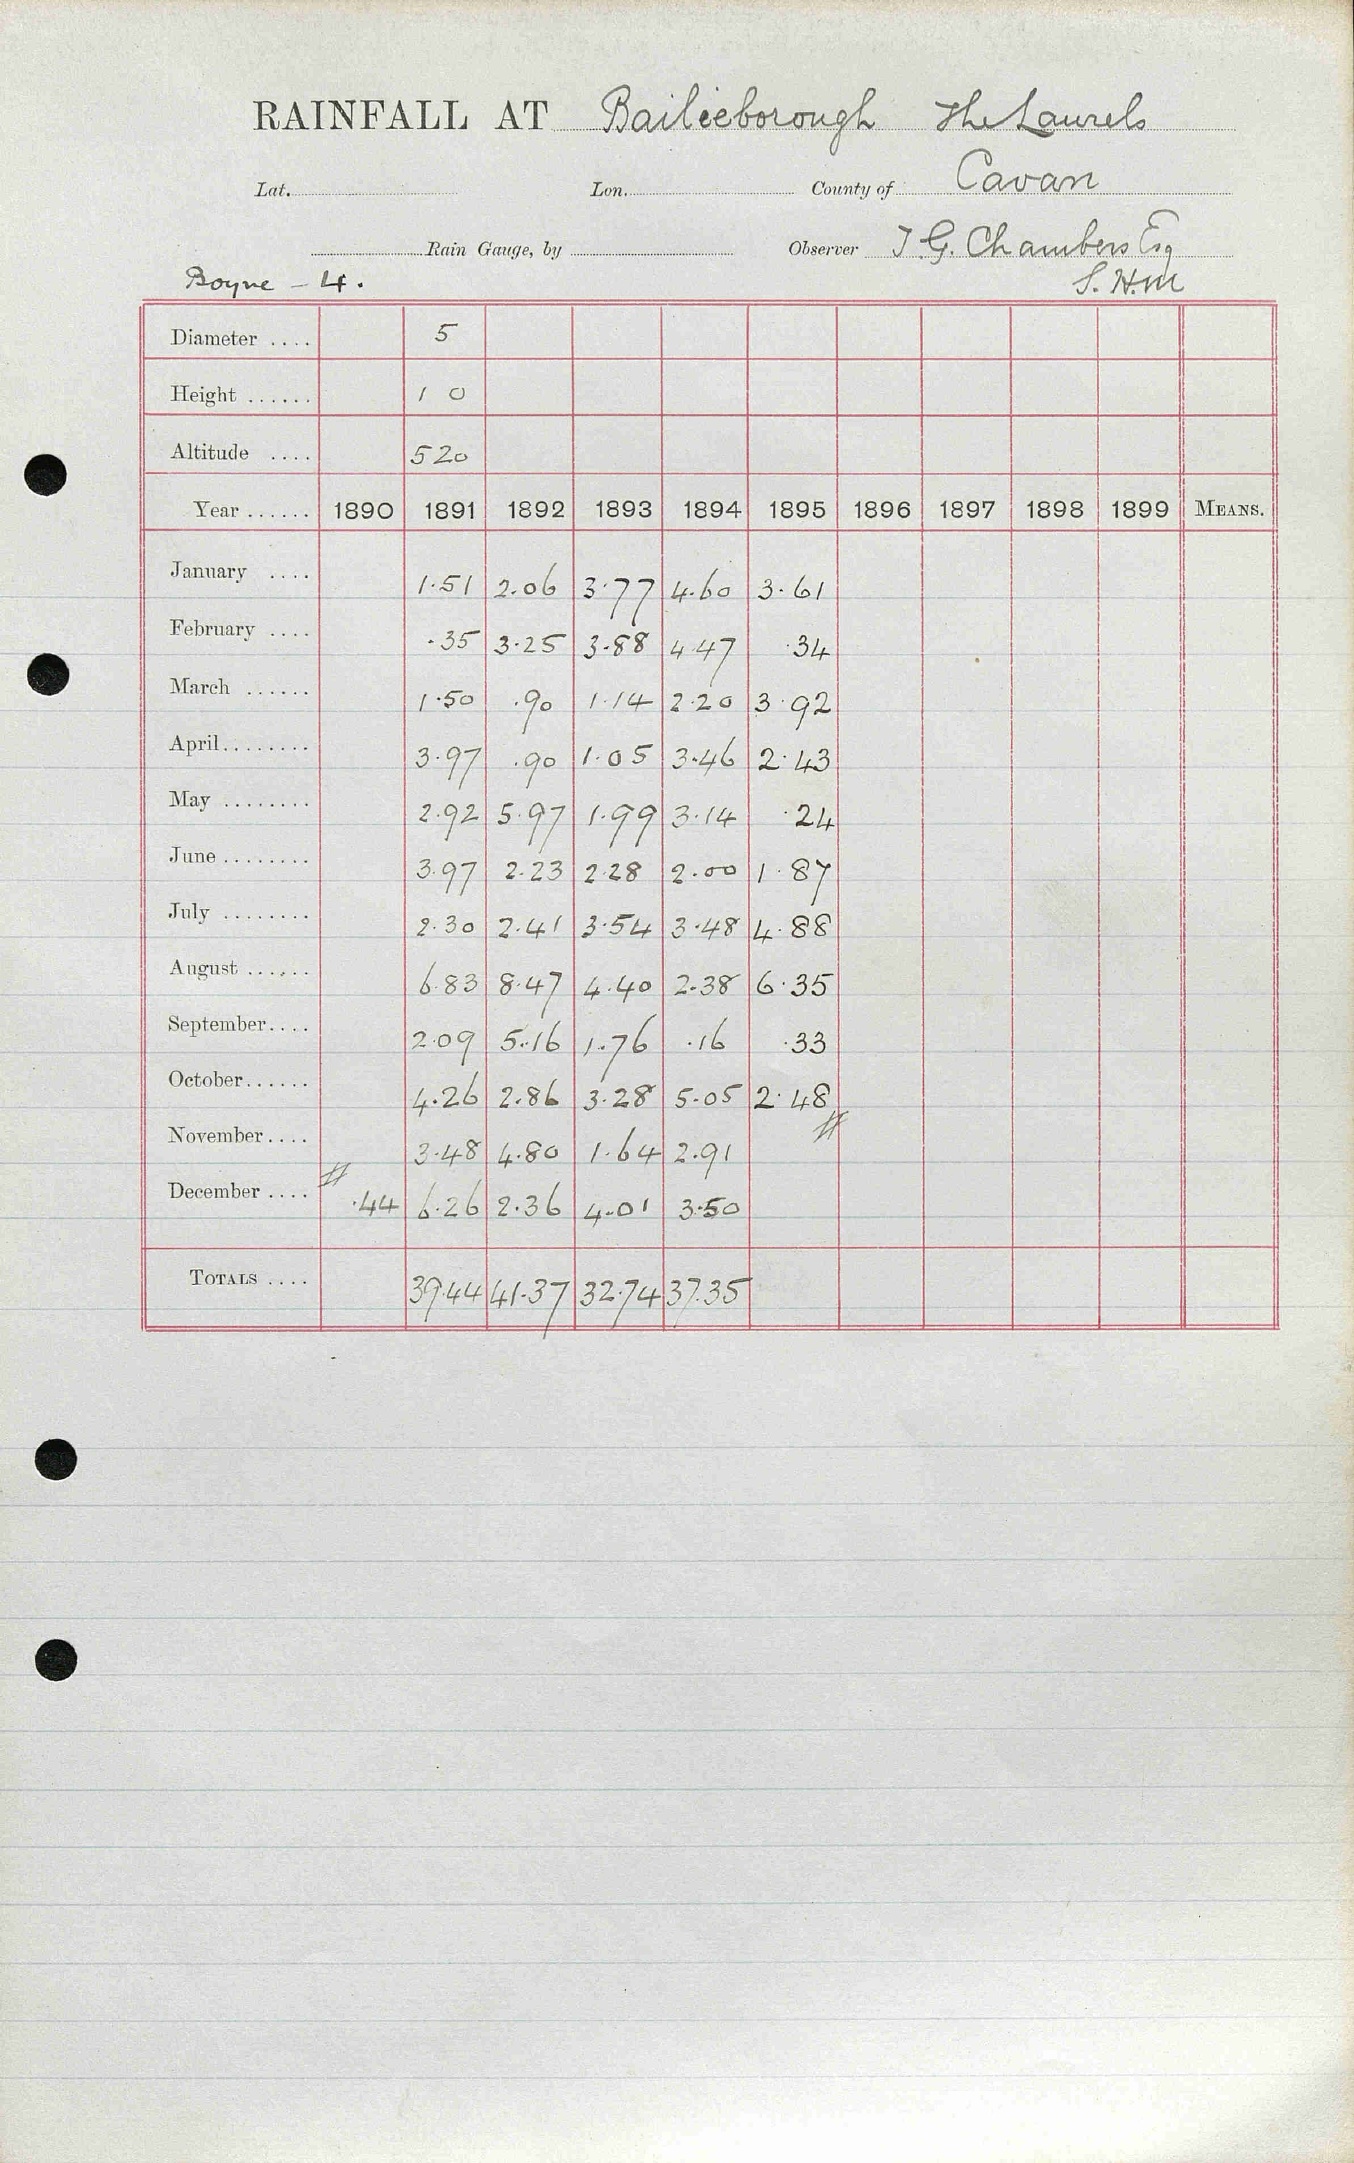 RAINFALL AT Bailieborough The Laurels
Lat. Lon. County of Cavan
Rain Gauge, by Observer J. G. Chambers Esq
Boyne - 4. S. H.M
Diameter .... 5
Height ...... 1 0
Altitude .... 520
Year ...... 1890 1891 1892 1893 1894 1895 1896 1897 1898 1899 MEANS.
January .... 1.51 2.06 3.77 4.60 3.61
February .... .35 3.25 3.88 4.47 .34
March ...... 1.50 .90 1.14 2.20 3.92
April........ 3.97 .90 1.05 3.46 2.43
May ........ 2.92 5.97 1.99 3.14 .24
June ........ 3.97 2.23 2.28 2.00 1.87
July ........ 2.30 2.41 3.54 3.48 4.88
August ...... 6.83 8.47 4.40 2.38 6.35
September.... 2.09 5.16 1.76 .16 .33
October...... 4.26 2.86 3.28 5.05 2.48
November.... 3.48 4.80 1.64 2.91
December .... .44 6.26 2.36 4.01 3.50
TOTALS .... 39.44 41.37 32.74 37.35